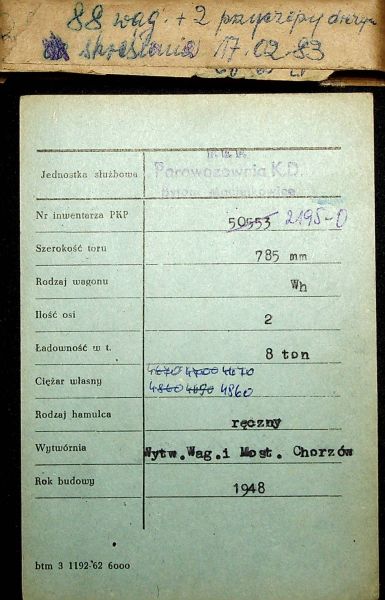 88 wag. + 2 przyczepy
skreślenia 17.02.83
Jednostka służbowa
Parowozownia K.D.
Bytom Maciejkowice
Nr inwentarza PKP 50553 2195-0
Szerokość toru 785 mm
Rodzaj wagonu Wh
Ilość osi 2
Ładowność w t. 8 ton
4670 4700 4670
Ciężar własny
4860 4690 4860
Rodzaj hamulca ręczny
Wytwórnia Wytw.Wag.i Most. Chorzów
Rok budowy 1948
btm 3 1192-62 6000